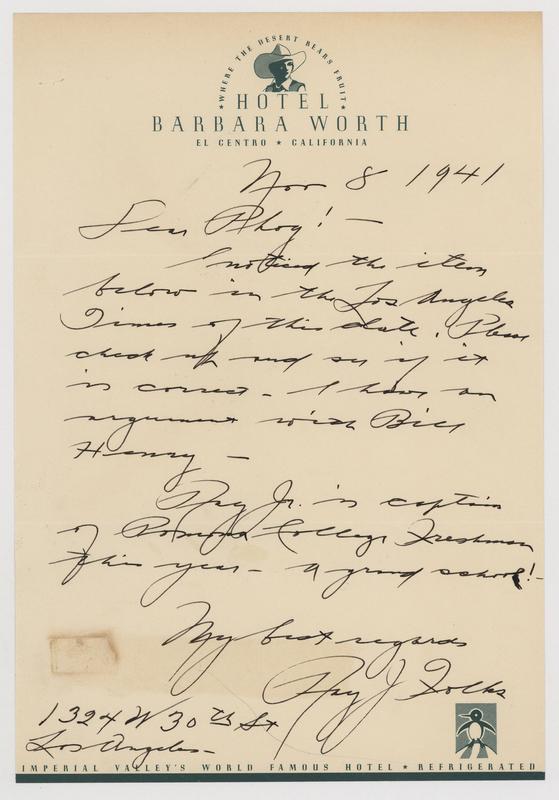 ★ WHERE THE DESERT BEARS FRUIT ★
HOTEL
BARBARA WORTH
EL CENTRO ★ CALIFORNIA
Nov 8 1941
Dear Phog! —
I noticed the item
below in the Los Angeles
Times of this date. Please
check up and see if it
is correct - I have an
argument with Bill
Henry —
Ray Jr. is captain
of Pomona College Freshman
this year - a grand school! -
My best regards
Ray J Folks
1324 W 30th St
Los Angeles -
IMPERIAL VALLEY'S WORLD FAMOUS HOTEL ★ REFRIGERATED